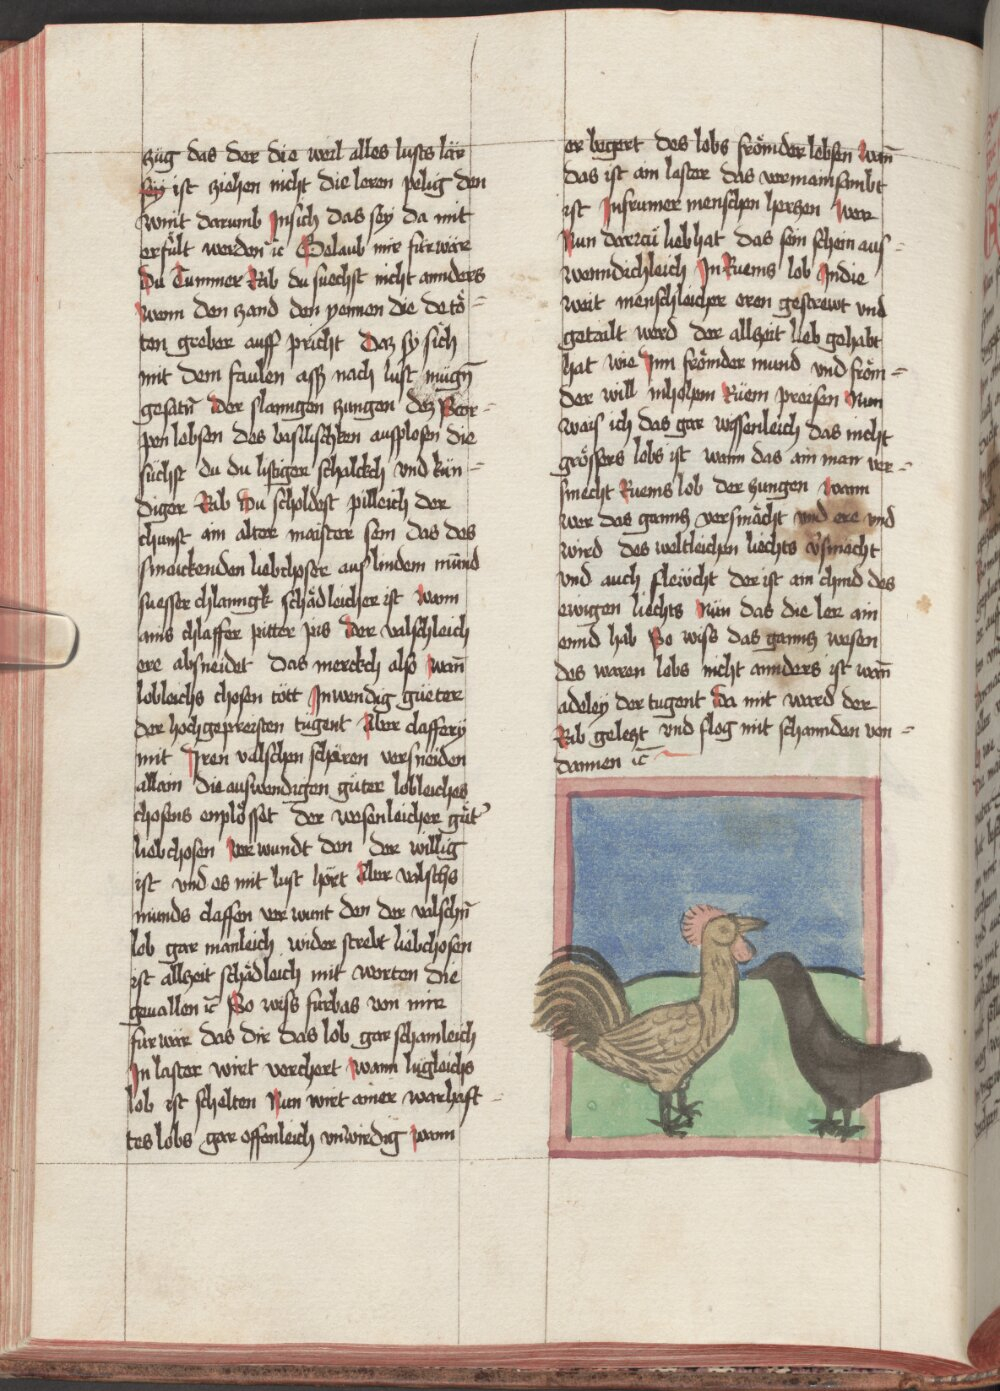 züg das der die weil alles lusts lär
sey ist ziehen nicht die leren pelig den
wint darumb Insich das sey da mit
erfült werden ic̄ Gelaub mir fürwär
Du Tummer Rab du suechst nicht annders
wenn den zand den pennen die de tö=
ten greber auff pricht Daz sy sich
mit dem faulen asz nach lust mügn̄
gesatn̄ der slanngen zungen dez Scor=
pen lebsen des basilischken ausplosen die
süchst du du listiger schalckch vnd kün=
diger Rab Du scholdest pilleich der
chunst ain alter maister sein das des
smaickenden liebchoser aus lindem münd
suesser chlanngk schädleicher ist wann
ains chlaffer pitter pis der valschleich
ere absneidet das merckch also wan̄
lobleichs chosen tött Inwendig güeter
der hochgepreisten tugent Aber claffery
mit Iren valschen schären versneiden
allain die auswendigen güter lobleiches
chosens enplösset der wesenleicher güt
liebchosen verwundt den der willig
ist vnd es mit lust hört Aber valschs
munds claffen verwunt den der valschn̄
lob gar manleich wider strebt liebchosen
ist allzeit schädleich mit worten die
geuallen ic̄ So wiss fürbas von mir
fürwär das dir das lob gar schamleich
In laster wirt verchert wann lugleichs
lob ist schelten Nun wirt ainer warhaff=
tes lobs gar offenleich vnwirdig wann
er begert des lobs frömder lebsen wan̄
das ist ain laster das vermainsambt
ist Infrumer menschen herzen wer
Nun darczu lieb hat das sein schein aus=
wenndichleich In Ruems lob Indie
weit menschleicher eren gestrewt vnd
getailt werd der allzeit lieb gehabt
hat wie Inn frömder mund vnd fröm=
der will Ruem preisen Nun
wais ich das gar wissenleich das nicht
grössers lobs ist wann das ain man ver=
smecht Ruems lob der zungen wann
wer das gannz versmächt vnd ere vnd
wird des weltleichen liechts v̓smächt
vnd auch fleucht der ist ain chind des
ewigen liechts Nun das die ler ain
ennd hab So wiss das gannz wesen
des waren lobs nicht annders ist wan̄
adeley der tugent Da mit ward der
Rab gelezt vnd flog mit schannden von=
dannen ic̄